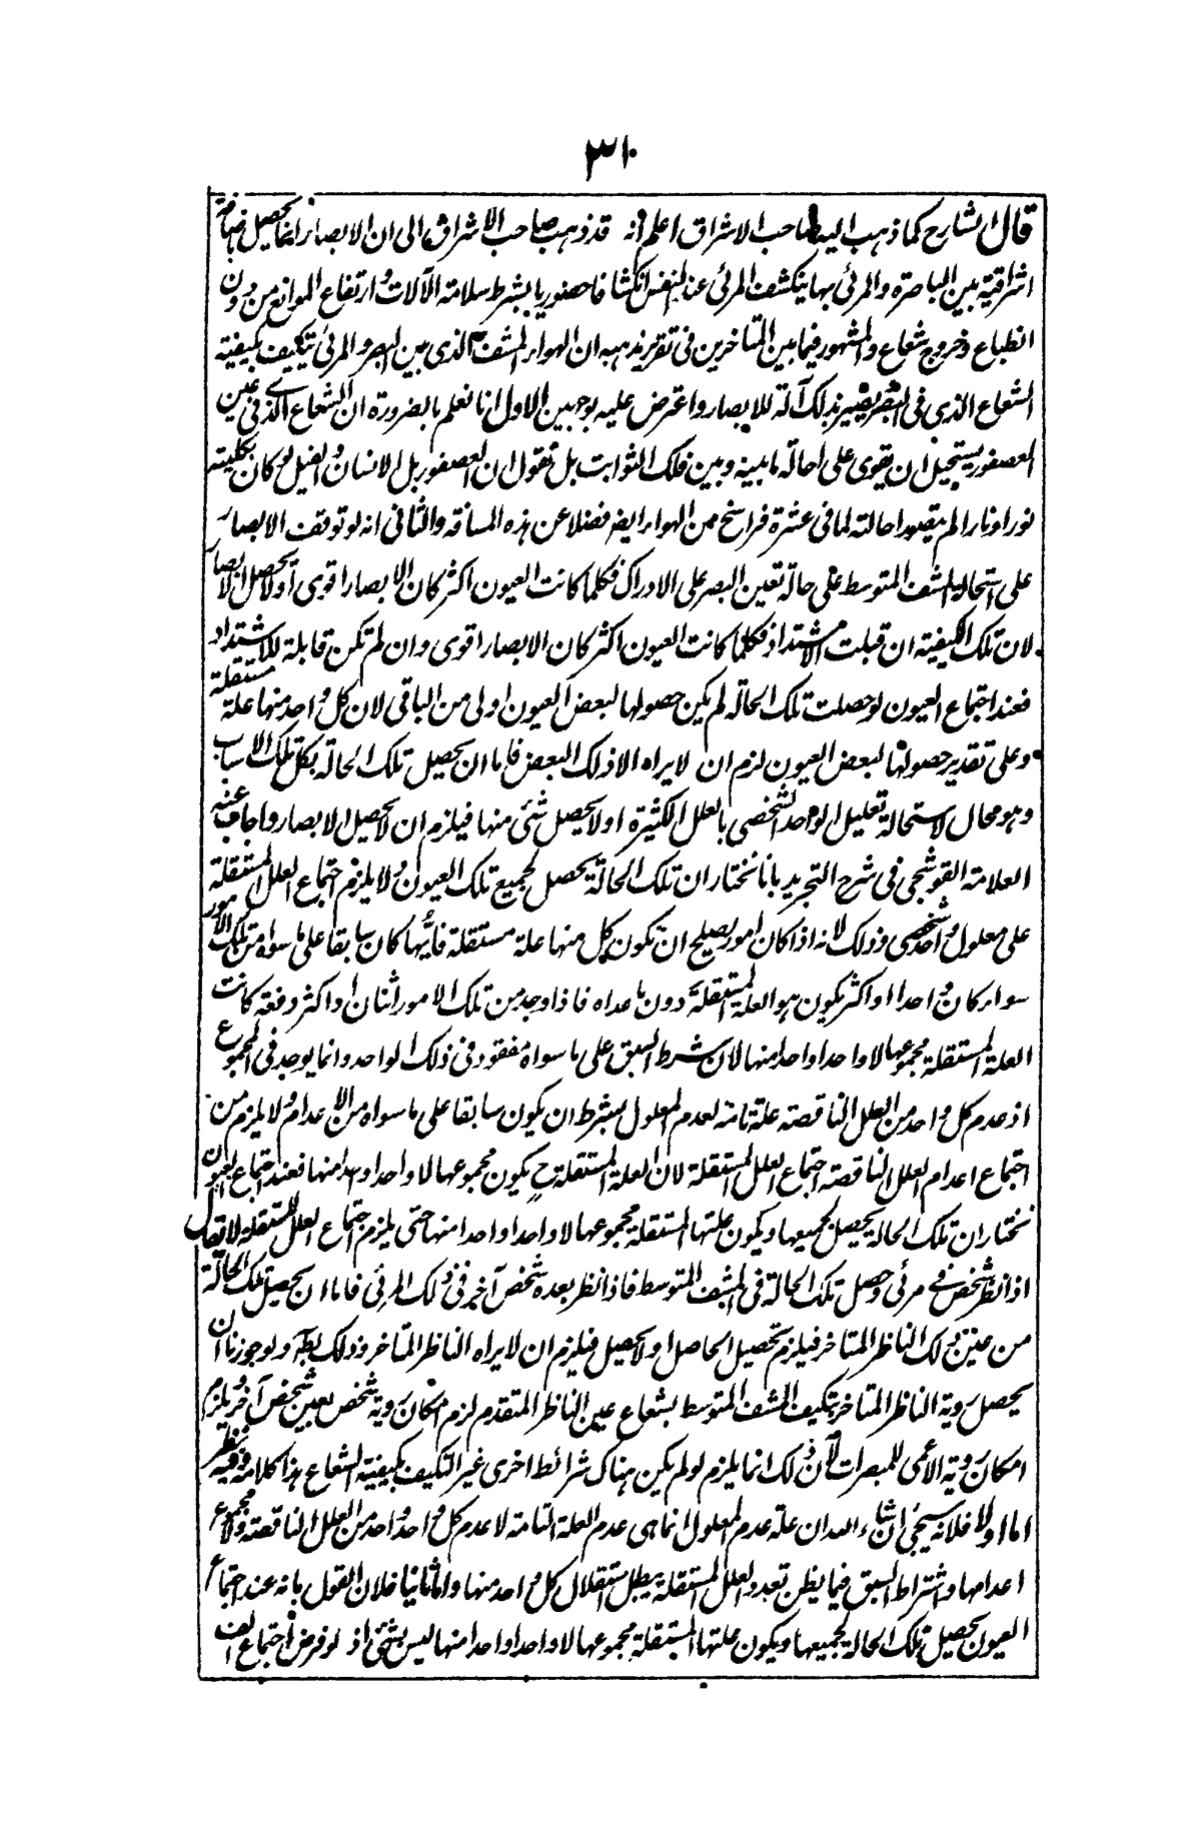 ٣١٠
قال الشارح كما ذهب اليه صاحب الاشراق اعلم انه قد ذهب صاحب الاشراق الى ان الابصار انما يحصل باضافة
اشراقية بين الباصرة والمرئى بها ينكشف المرئى عند النفس انكشافا حضوريا بشرط سلامة الآلات وارتفاع الموانع من دون
انطباع وخروج شعاع والمشهور فيما بين المتاخرين فى تقرير مذهبه ان الهواء المشف الذى بين البصر والمرئى يتكيف بكيفية
الشعاع الذى فى البصر ويصير بذلك آلة للابصار واعترض عليه بوجهين الاول انا نعلم بالضرورة ان الشعاع الذى فى عين
العصفور يستحيل ان يقوى على احالة ما بينه وبين فلك الثوابت بل نقول ان العصفور بل الانسان والفيل لو كان بكليته
نورا ونارا لم يتصور احالته لما فى عشرة فراسخ من الهواء ايضا فضلا عن هذه المسافة والثانى انه لو توقفت الابصار
على استحالة المشف المتوسط على حالة تعين البصر على الادراك فكلما كانت العيون اكثر كان الابصار اقوى اولا يحصل الابصار
لان تلك الكيفية ان قبلت الاشتداد فكلما كانت العيون اكثر كان الابصار اقوى وان لم تكن قابلة للاشتداد
فعند اجتماع العيون لو حصلت تلك الحالة لم يكن حصولها لبعض العيون اولى من الباقى لان كل واحد منها علة مستقلة
وعلى تقدير حصولها لبعض العيون لزم ان لا يراه الا ذلك البعض فاما ان يحصل تلك الحالة بكل تلك الاسباب
وهو محال لاستحالة تعليل الواحد الشخصى بالعلل الكثيرة اولا يحصل شئ منها فيلزم ان لا يحصل الابصار واجاب عنه
العلامة القوشجى فى شرح التجريد بانا نختار ان تلك الحالة تحصل لجميع تلك العيون ولا يلزم اجتماع العلل المستقلة
على معلول واحد شخصى وذلك لانه اذا كان امور يصلح ان تكون كل منها علة مستقلة فايها كان سابقا على ما سواه من تلك الامور
سواء كان واحدا او اكثر يكون هو العلة المستقلة دون ما عداه فاذا وجد من تلك الامور اثنان او اكثر دفعة كانت
العلة المستقلة مجموعها لا واحدا واحدا منها لان شرط السبق على ما سواه مفقود فى ذلك الواحد وانما يوجد فى المجموع
اذ عدم كل واحد من العلل الناقصة علة تامة لعدم المعلول بشرط ان يكون سابقا على ما سواه من الاعدام ولا يلزم من
اجتماع اعدام العلل الناقصة اجتماع العلل المستقلة لان العلة المستقلة ح يكون مجموعها لا واحدا واحدا منها فعند اجتماع العيون
نختار ان تلك الحالة يحصل لجميعها ويكون علتها المستقلة مجموعها لا واحدا واحدا منها حتى يلزم اجتماع العلل المستقلة لا يقال
اذا نظر شخص فى مرئى وحصل تلك الحالة فى المشف المتوسط فاذا نظر بعده شخص آخر فى ذلك المرئى فاما ان يحصل تلك الحالة
من عين ذلك الناظر المتاخر فيلزم تحصيل الحاصل اولا يحصل فيلزم ان لا يراه الناظر المتاخر وذلك بط ولو جوزنا ان
يحصل روية الناظر المتاخر بتكيف المشف المتوسط بشعاع عين الناظر المتقدم لزم امكان روية شخص بعين شخص آخر ويلزم
امكان روية الاعمى للمبصرات لان ذلك انما يلزم لو لم يكن هناك شرائط اخرى غير التكيف بكيفية الشعاع هذا كلامه وفيه نظر
اما اولا فلانه سيجئ ان شاء الله ان علة عدم المعلول انما هى عدم العلة التامة لا عدم كل واحد واحد من العلل الناقصة ولا مجموع
اعدامها واشتراط السبق فيما يظن تعدد العلل المستقلة يبطل استقلال كل واحد منها واما ثانيا فلان القول بانه عند اجتماع
العيون يحصل تلك الحالة لجميعها ويكون علتها المستقلة مجموعها لا واحدا واحدا منها ليس بشئ اذ لو فرض اجتماع الف